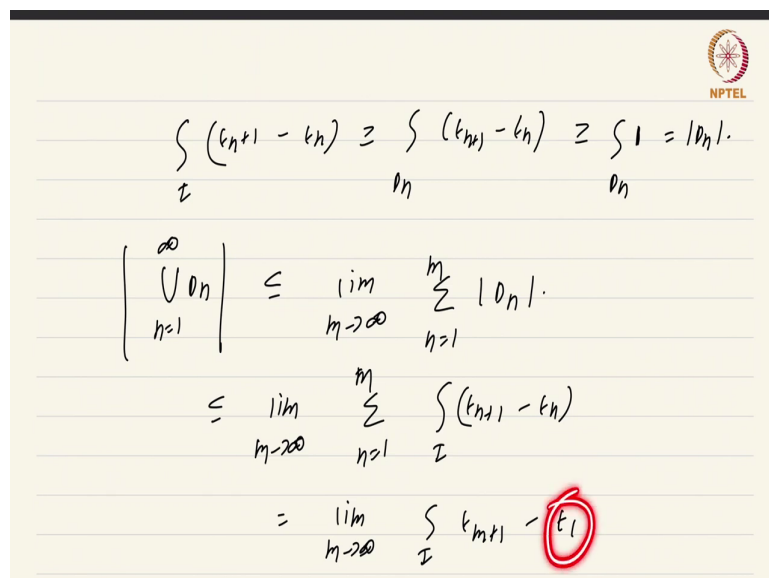 NPTEL
∫_I (t_{n+1} - t_n) ≥ ∫_{D_n} (t_{n+1} - t_n) ≥ ∫_{D_n} 1 = |D_n|.
|⋃_{n=1}^{∞} D_n| ≤ lim_{m→∞} ∑_{n=1}^{m} |D_n|.
≤ lim_{m→∞} ∑_{n=1}^{m} ∫_I (t_{n+1} - t_n)
= lim_{m→∞} ∫_I t_{m+1} - t_1